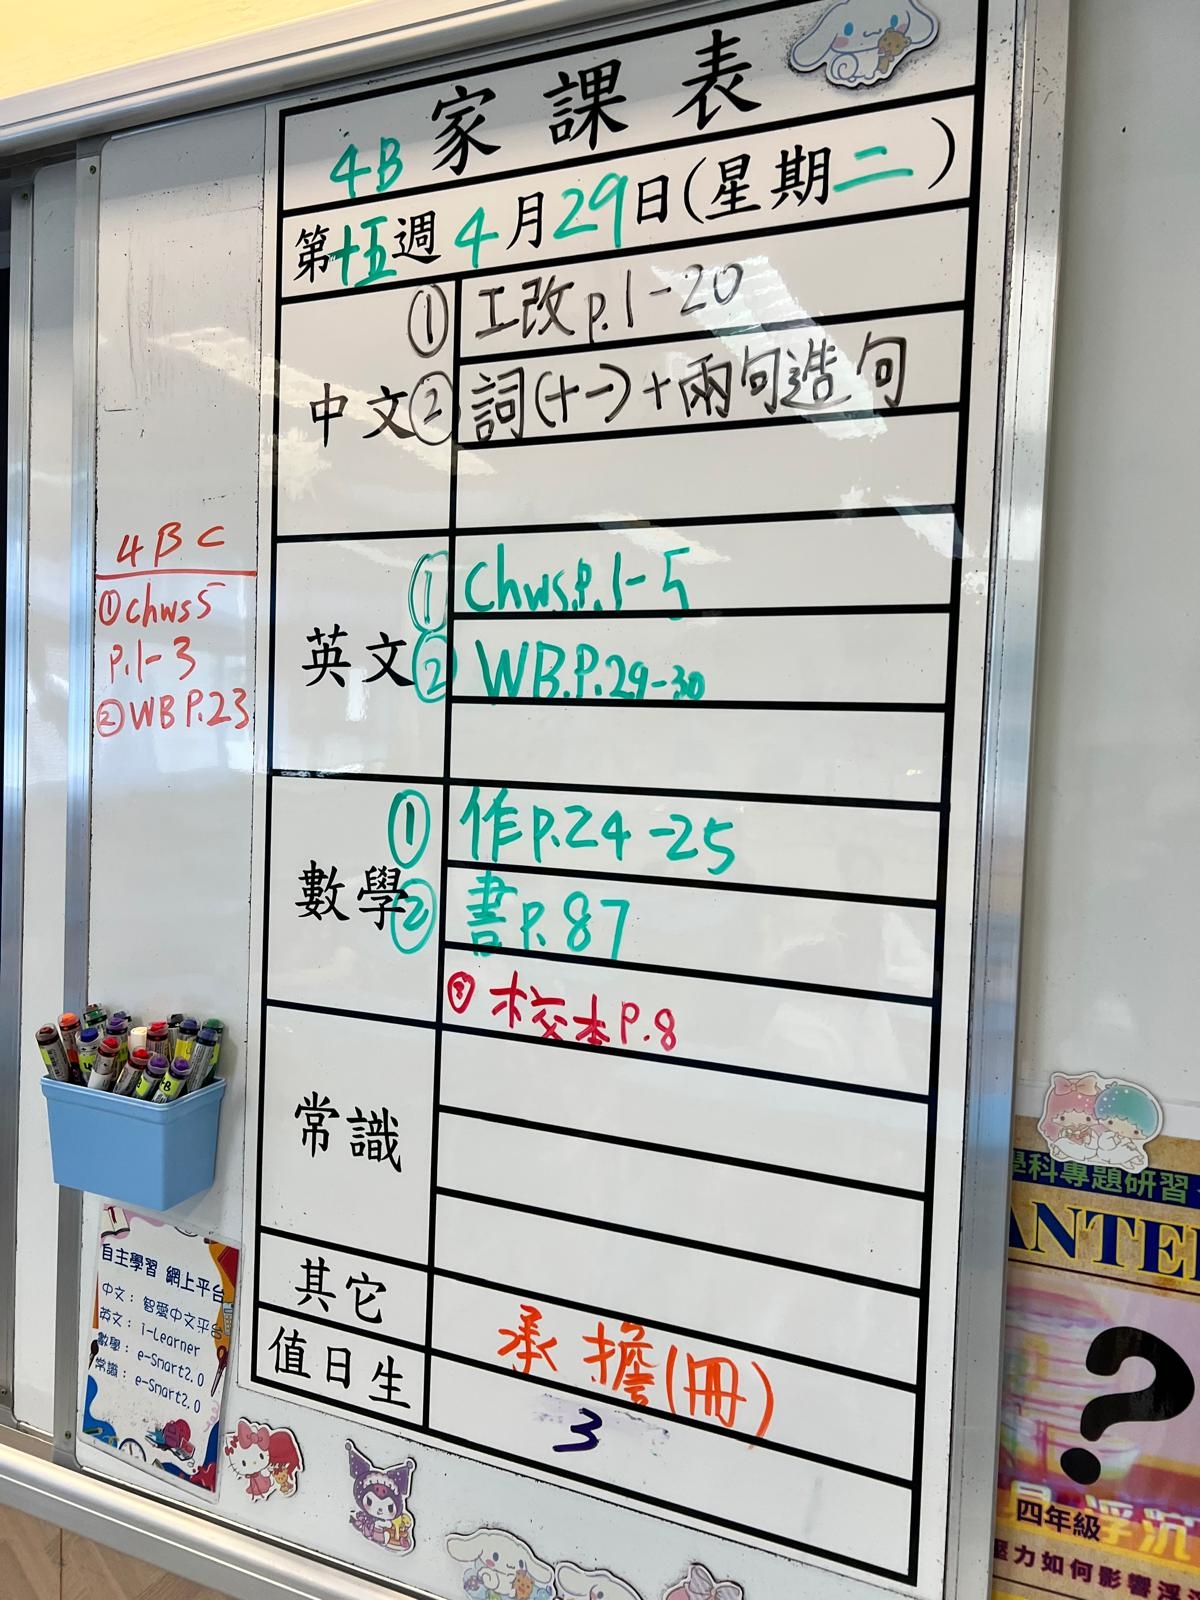 4B 家課表
第十五週 4月29日(星期二)
中文
① 工改 p.1-20
② 詞(十一)+兩句造句
英文
① Chws.P.1-5
② WB.P.29-30
數學
① 作p.24-25
② 書p.87
③ 校本P.8
常識
其它
承擔(冊)
值日生
3
4BC
① chws5
P.1-3
② WB P.23
自主學習 網上平台
中文：智愛中文平台
英文：i-Learner
數學：e-Smart2.0
常識：e-Smart2.0
學科專題研習
ANTE
?
浮沉
四年級
壓力如何影響浮